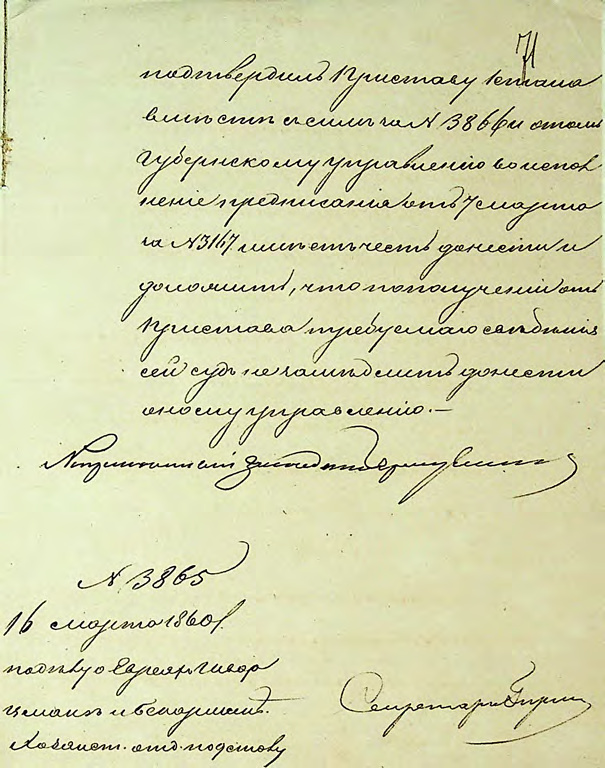 71
подтвердилъ Приставу 1 стана
вмѣстѣ съ симъ за N 3866 и о томъ
Губернскому управленію во испол
неніе предписанія отъ 7 марта
за N 3167 имѣетъ честь донести и
доложить, что по полученіи отъ
Пристава требуемаго свѣдѣнія
сей судъ не замѣдлитъ донести
оному управленію.—
Непремѣнный Засѣдатель
N 3865
16 марта 1860 г.
по дѣлу о Евреяхъ
Секретарь